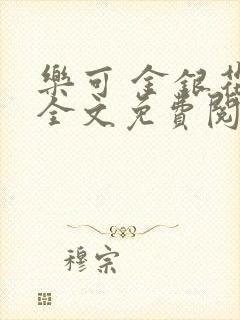 樂可 金銀花
全文免費閱
穆宗